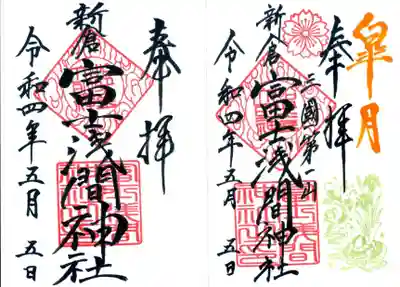 奉拝
新倉富士浅間神社
令和四年五月五日
皐月
奉拝
三國第一山
新倉富士浅間神社
令和四年五月五日